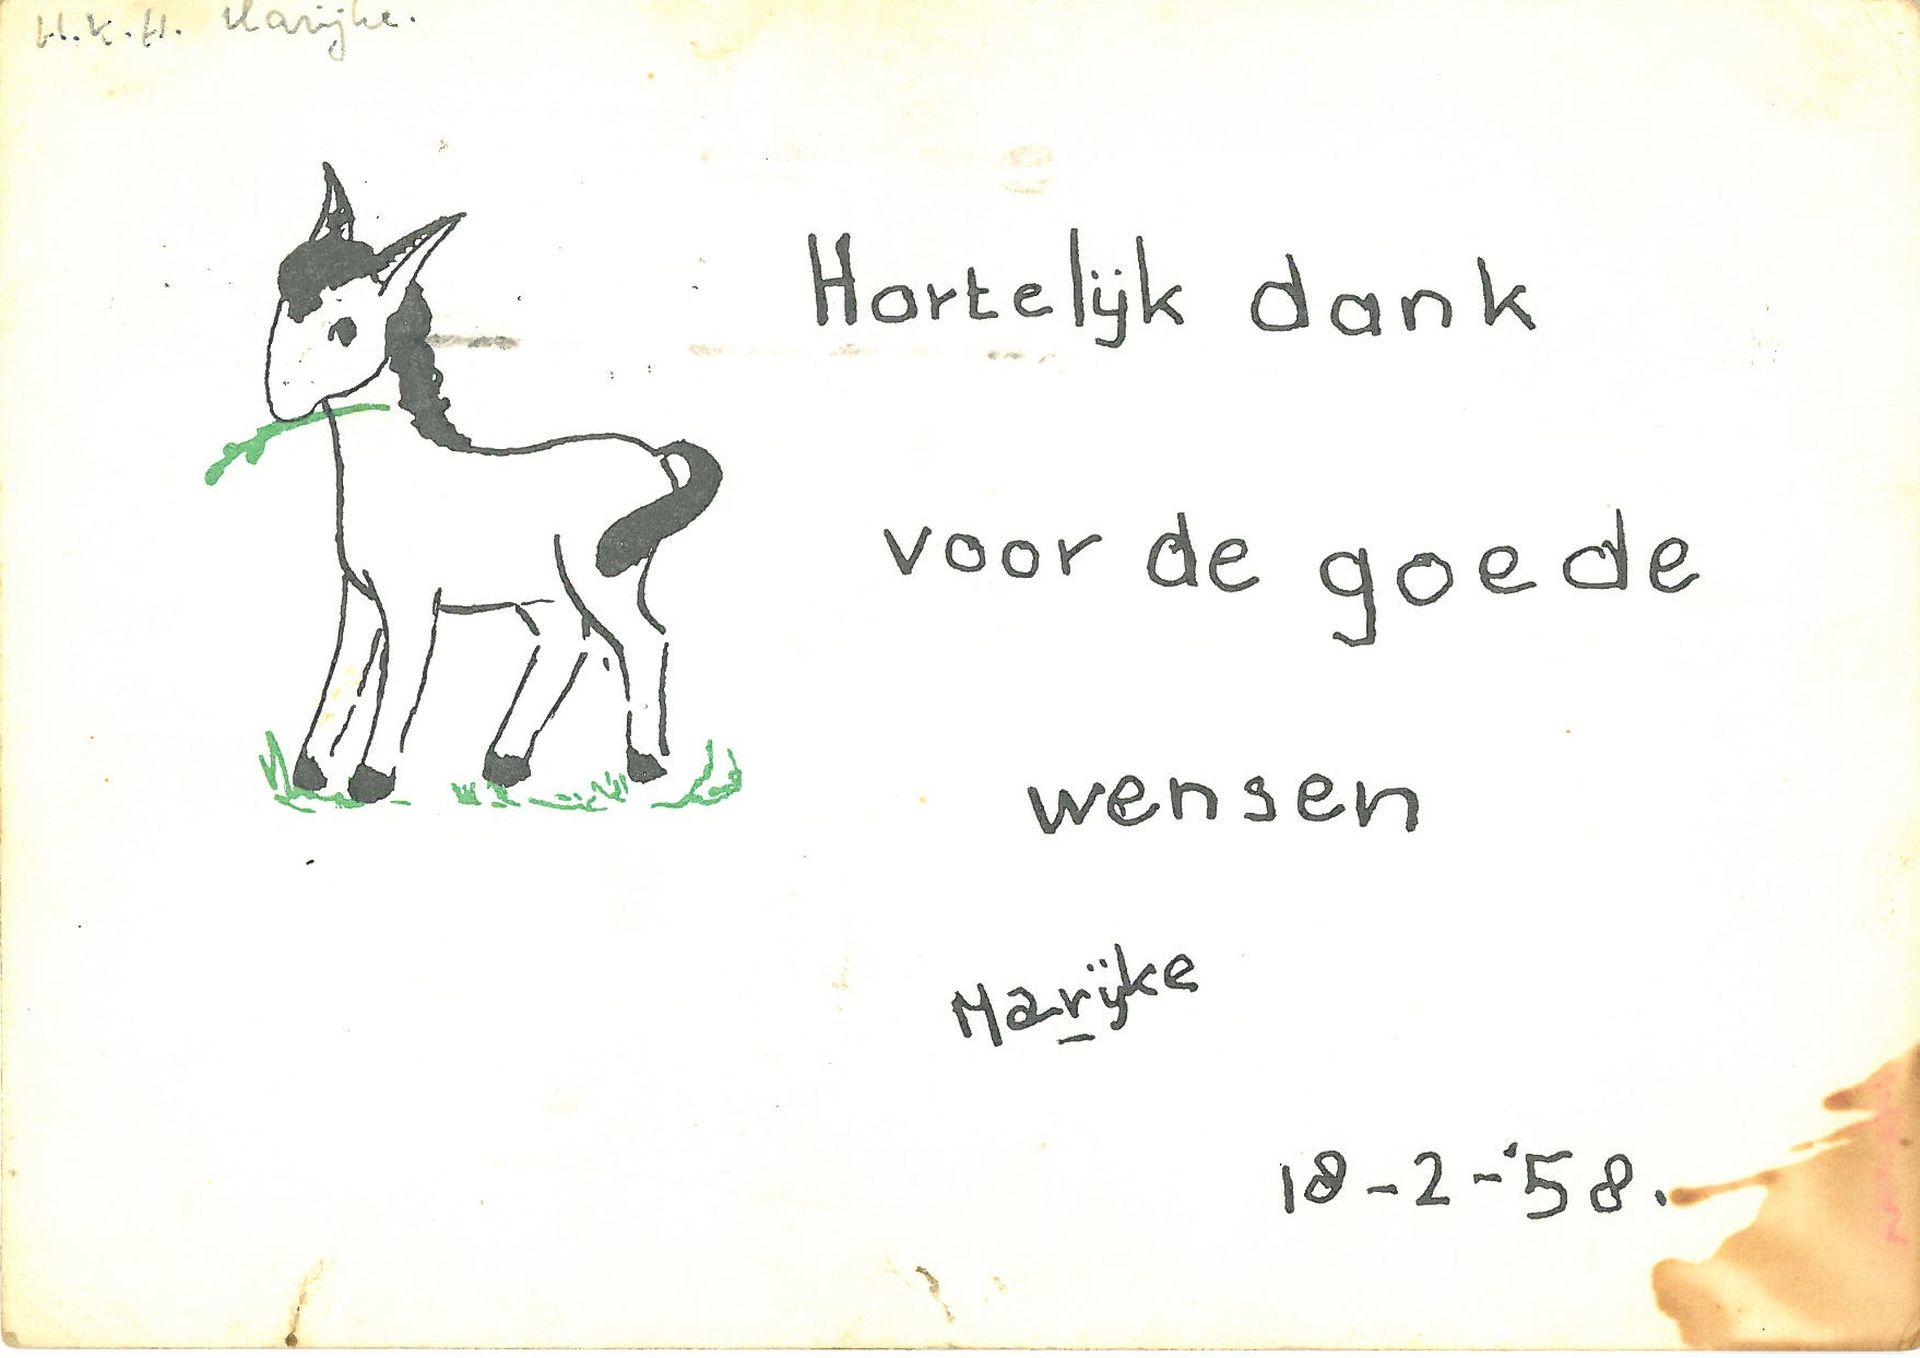 H.K.H. Marijke.
Hartelijk dank
voor de goede
wensen
Marijke
18-2-'58.